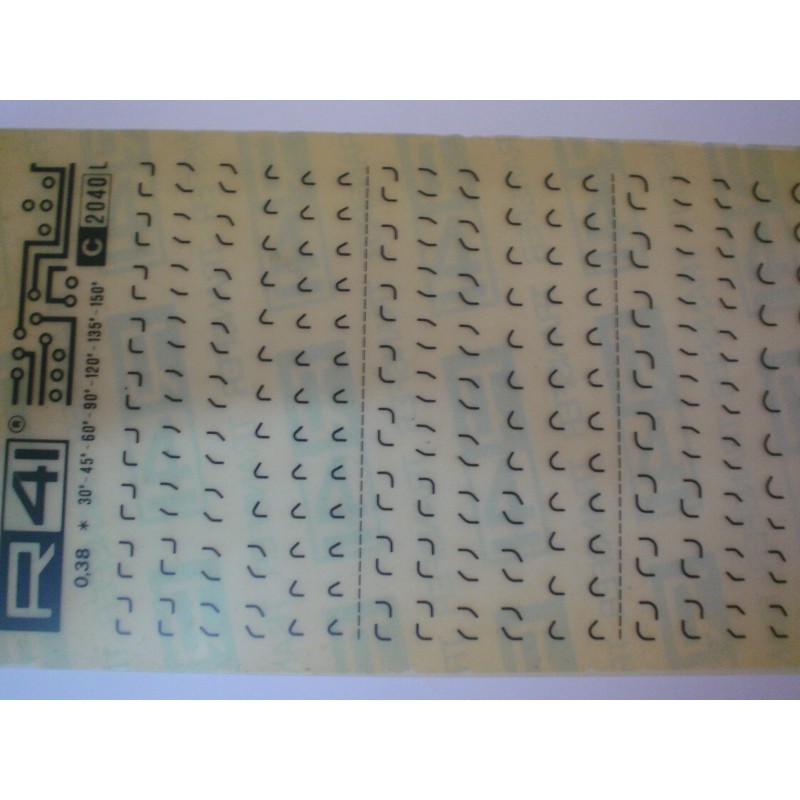 R41®
0,38 * 30'-45'-60'-90'-120'-135'-150'
C 2040 L